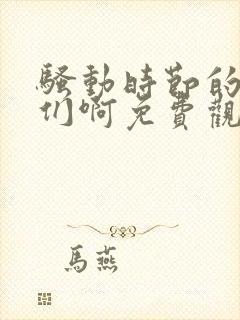 騷動時節的
们啊免費觀
馬燕